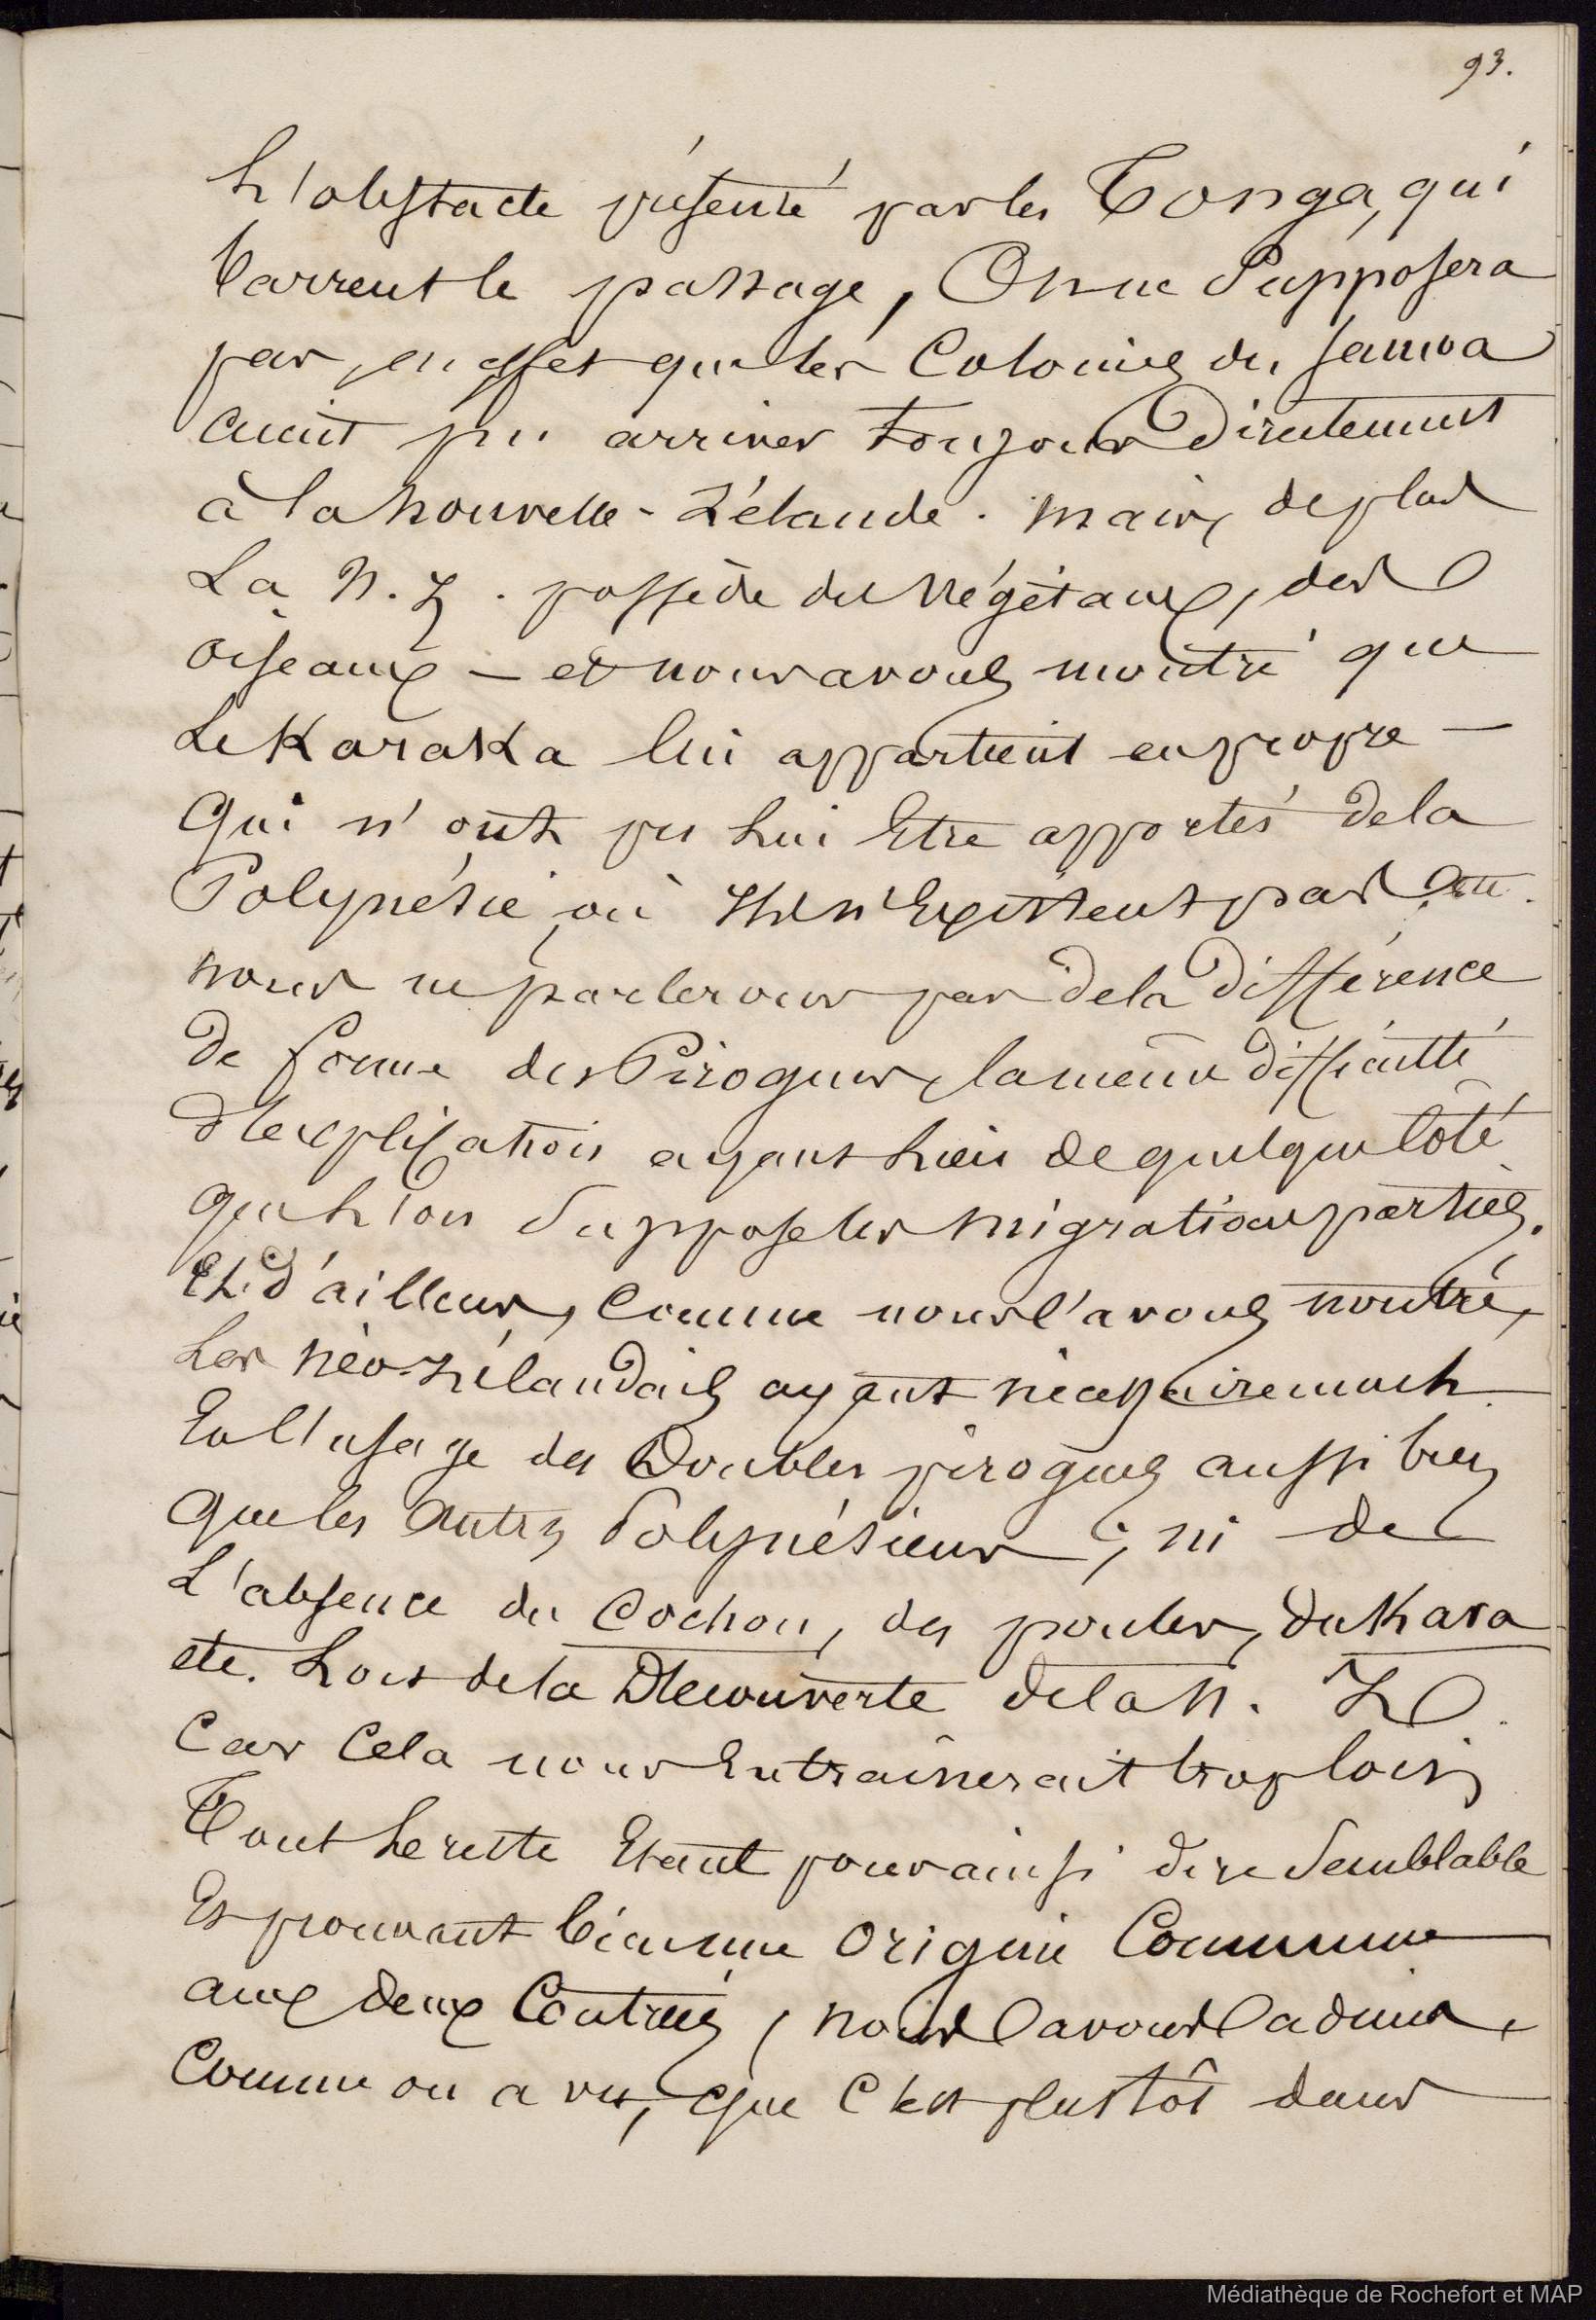 93.
L'obstacle présenté par les Tonga, qui
barrent le passage, On ne supposera
pas, en effet que les Colonies des Samoa
aient pu arriver toujours Directement
à la nouvelle-Zélande. mais, de plus
La N. Z. possède des Végétaux, des
oiseaux – et nous avons montré que
Le Karaka lui appartient en propre –
Qui n'ont pu lui Etre apportés de la
Polynésie, où Ils n'Existent pas
nous ne parlerons pas de la Différence
De forme des Pirogues, la même difficulté
d'explication ayant lieu de quelque Côté
que l'on suppose les migrations parties.
Et d'ailleurs, Comme nous l'avons montré,
Les néo-Zélandais ayant nécessairement
Eu l'usage des Doubles pirogues aussi bien
Que les Autres Polynésiens ; ni de
L'absence du Cochon, des poules, du Kava
etc. Lors de la Découverte de la N. Z.
Car Cela nous Entraînerait trop loin
Tout le reste Etant pour ainsi dire Semblable
Et prouvant bien une Origine Commune
aux deux Contrées, nous avons admis,
Comme on a vu, que C'est plustôt dans
Médiathèque de Rochefort et MAP